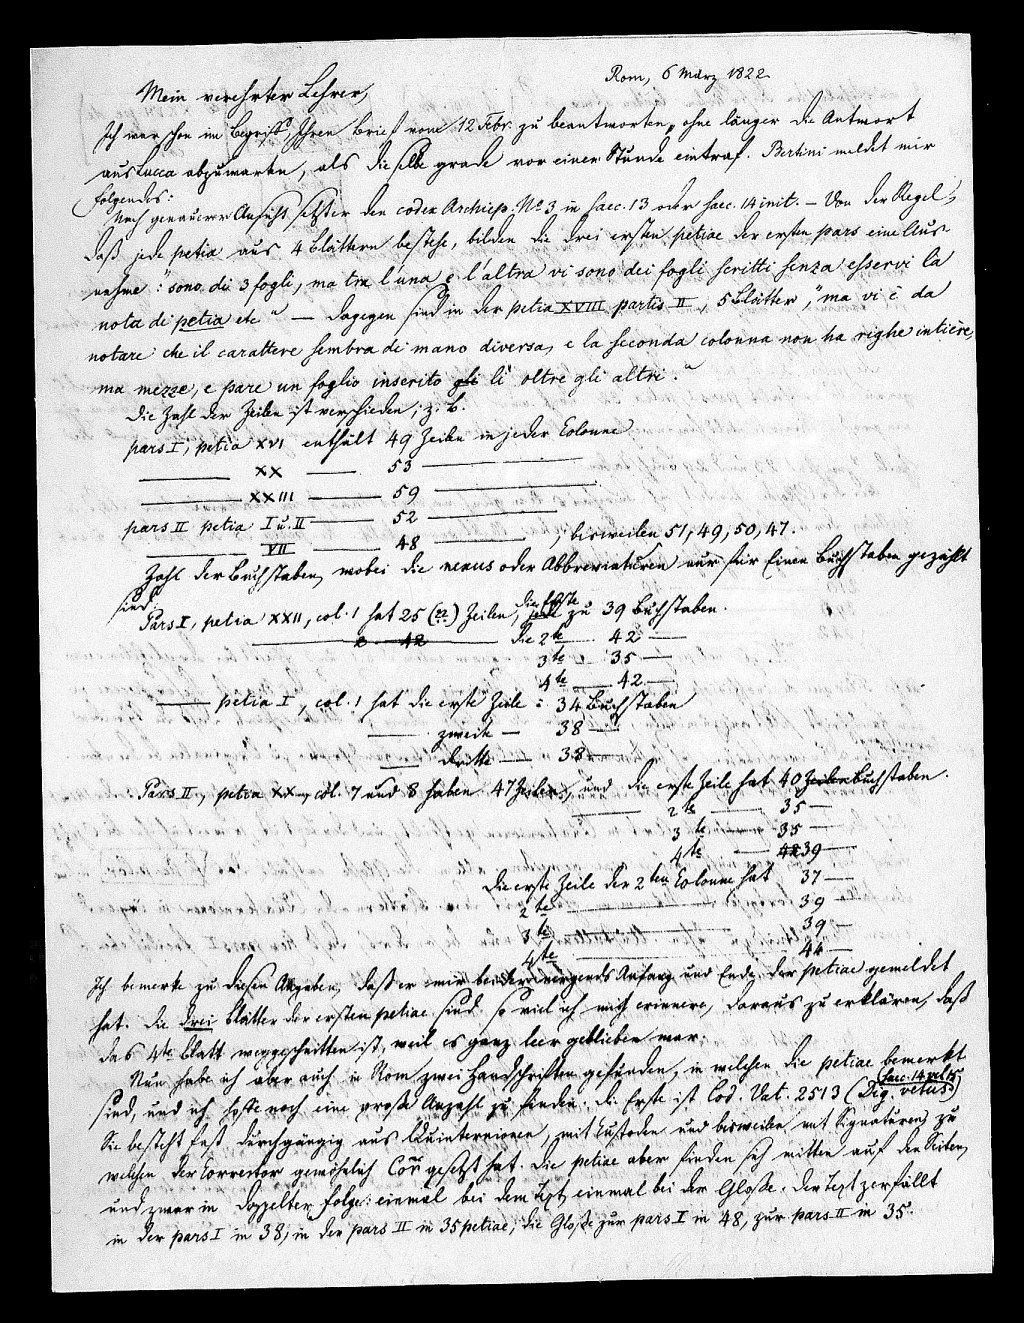 Rom, 6 März 1822
Mein verehrter Lehrer,
Ich war schon im Begriff, Ihren Brief vom 12 Febr. zu beantworten, ohne länger die Antwort
aus Lucca abzuwarten, als dieselbe grade vor einer Stunde eintraf. Bertini meldet mir
folgendes:
Nach genauerer Ansicht setzt er den codex Archiep. No 3 in saec. 13 oder saec. 14 init. – Von der Regel,
daß jede petia aus 4 Blättern bestehe, bilden die drei ersten petiae der ersten pars eine Aus
nahme: "sono di 3 fogli, ma tra l'una e l'altra vi sono dei fogli scritti senza esservi la
nota di petia etc" — Dagegen sind in der petia XVIII partis II, 5 Blätter, "ma vi è da
notare che il carattere sembra di mano diversa, e la seconda colonna non ha righe intiere,
ma mezze, e pare un foglio inserito gli lì oltre gli altri."
Die Zahl der Zeilen ist verschieden; z. B.
pars I, petia XVI enthält 49 Zeilen in jeder Colonne
——— XX —— 53 ———
——— XXIII —— 59 ———
pars II petia I u. II —— 52 ———
——— VII —— 48 ———, bisweilen 51, 49, 50, 47.
Zahl der Buchstaben, wobei die nexus oder Abbreviaturen nur für Einen Buchstaben gezählt
sind:
Pars I, petia XXII, col. 1 hat 25 Zeilen, die erste zu 39 Buchstaben.
——— 2 42 —— die 2te —— 42 ——
3te — 35 ——
4te —— 42 ——
—— petia I, col. 1 hat die erste Zeile : 34 Buchstaben
—— zweite — 38 ——
—— dritte —— 38 ——
Pars II, petia XX, col. 7 und 8 haben 47 Zeilen, und die erste Zeile hat 40 Zeilen Buchstaben.
——— 2te —— 35 —
3te —— 35 —
4te —— 39 ——
Die erste Zeile der 2ten Colonne hat 37 ——
2te ——— 39 —
3te ——— 39 —
4te ——— 44 —
Ich bemerke zu diesen Angaben, daß er mir nirgends Anfang und Ende der petiae gemeldet
hat. Die drei Blätter der ersten petiae sind, so viel ich mich erinnere, daraus zu erklären, daß
das 4te Blatt weggeschnitten ist, weil es ganz leer geblieben war.
Nun habe ich aber auch in Rom zwei Handschriften gefunden, in welchen die petiae bemerkt
sind, und ich hoffe noch eine große Anzahl zu finden. Die Erste ist Cod. Vat. 2513 (Dig. vetus) saec. 14 vel 15
Sie besteht fast durchgängig aus Quinternionen, mit Custoden und bisweilen mit Signaturen, zu
welchen der Corrector gewöhnlich Cor gesetzt hat. Die petiae aber finden sich mitten auf den Seiten,
und zwar in doppelter Folge: einmal bei dem Text, einmal bei der Gloße. Der Text zerfällt
in der pars I in 38, in der pars II in 35 petiae, die Gloße zur pars I in 48, zur pars II in 35.